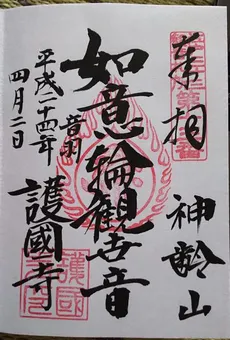 奉拝
神齢山
如意輪観世音
音羽
護國寺
平成二十四年
四月二日